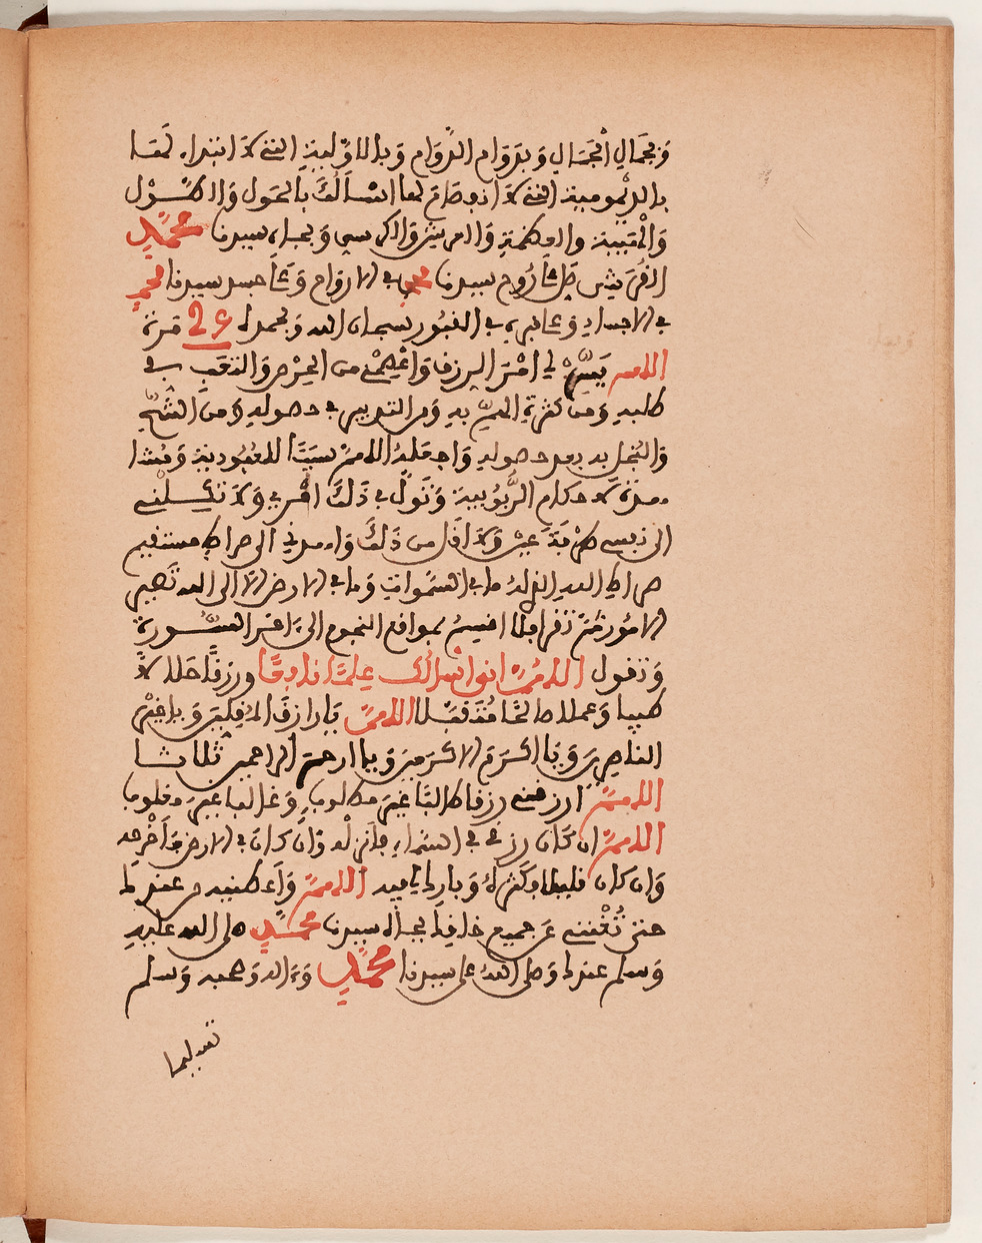 وَبجمَالِ الجمَالِ وَبدَوَامِ الدَّوَامِ وَبالاوّليةِ التي لَا ابتداء لهَا
بالديمومية التي لَا انوصَامَ لها اسْألُكَ بالحَول والطَّوْل
وَالْهَيبة والعظمةِ وَالعرش وَالكرسي وَبجاه سيدنا محمَّدٍ
القُرَيشي صَلّ على رُوح سيدنا محمد في الارواح وَعلَى جسد سيدنا محمد
في الاجساد وَعلى قبره في القبُور سبحان الله وَبحمده مَرة
اللهم يَسِّرْ لي امْرَ الرزق وَاعْصِمْني من الحِرْص وَالتعَبِ في
طلبهِ وَمن كثرة الهَمّ بهِ وَمن التدبير في حصوله وَمن الشُّحّ
وَالبُخل به بعد حصوله وَاجعَلهُ اللهمَّ سبَبًا للعُبُوديَّة وَمُشَا
هدَةً لاحكام الرُّبُوبيَة وَتَولَّ في ذَلكَ امْري وَلَا تكِلْني
الى نفسي طَرْفَةَ عَيْن وَلَا اقل من ذَلكَ وَاهدني الى صراط مستقيم
صراط الله الذي لهُ ما في السَّمَوات وَما في الارض الَا الى الله تَصير
الامُور ثمَّ تقرا فلا اقسمُ بمواقع النجوم الى ءَاخر السُّورة
وَتقول اللهُمَّ اني اسْألُكَ عِلمًا نافعًا ورزقًا حَلالًا
طَيبا وَعملا صالحًا مُتَقَبَّلا اللهمَّ يَا رازقَ المُقِلّينَ وَيا خَيْرَ
الناصِرِينَ وَيَا اكرَمَ الاكرَمينَ وَيا ارحمَ الراحمين ثَلاثا
اللهمَّ ارزقني رزقا طالبًا غيرَ مطلوب وَغالبا غيرَ مغلوب
اللهمَّ ان كَان رزقي في السَّماء فأنزلْه وَان كانَ في الارض فَأخْرجه
وَان كان قليلا فكَثّرهُ وَبارك لي فيه اللهمَّ وَأعطنيه من عندك
حتى تُغْنني عَن جميع خلقكَ بجاه سيدنا محمَّدٍ صلى الله عليهِ
وَسلم عندك وَصلى اللهُ على سيدنا محمَّدٍ وَءَاله وَصحبه وَسلم
تسليما